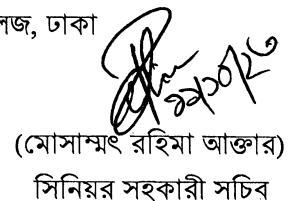 লজ, ঢাকা
২২/১০/২৩
(মোসাম্মৎ রহিমা আক্তার)
সিনিয়র সহকারী সচিব